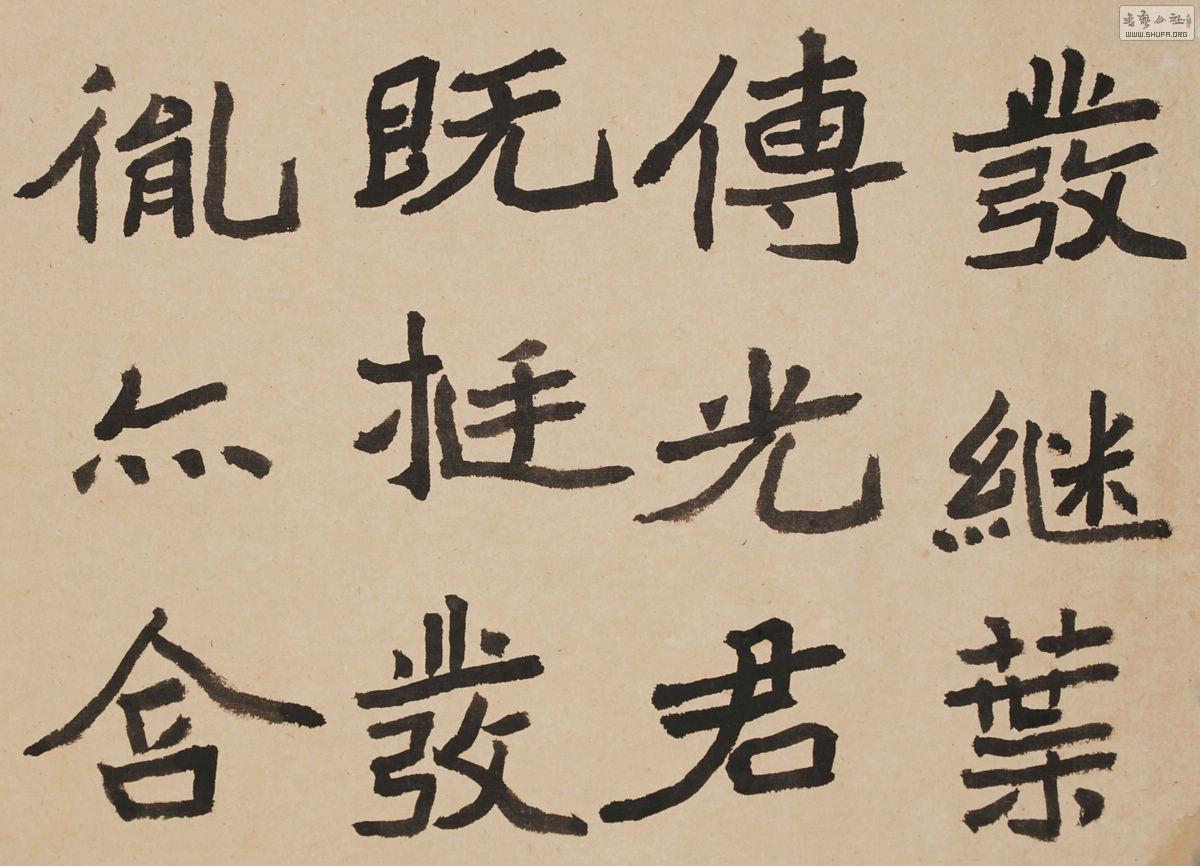 發継葉
傳光君
既挺發
胤亦含
書藝公社
WWW.SHUFA.ORG